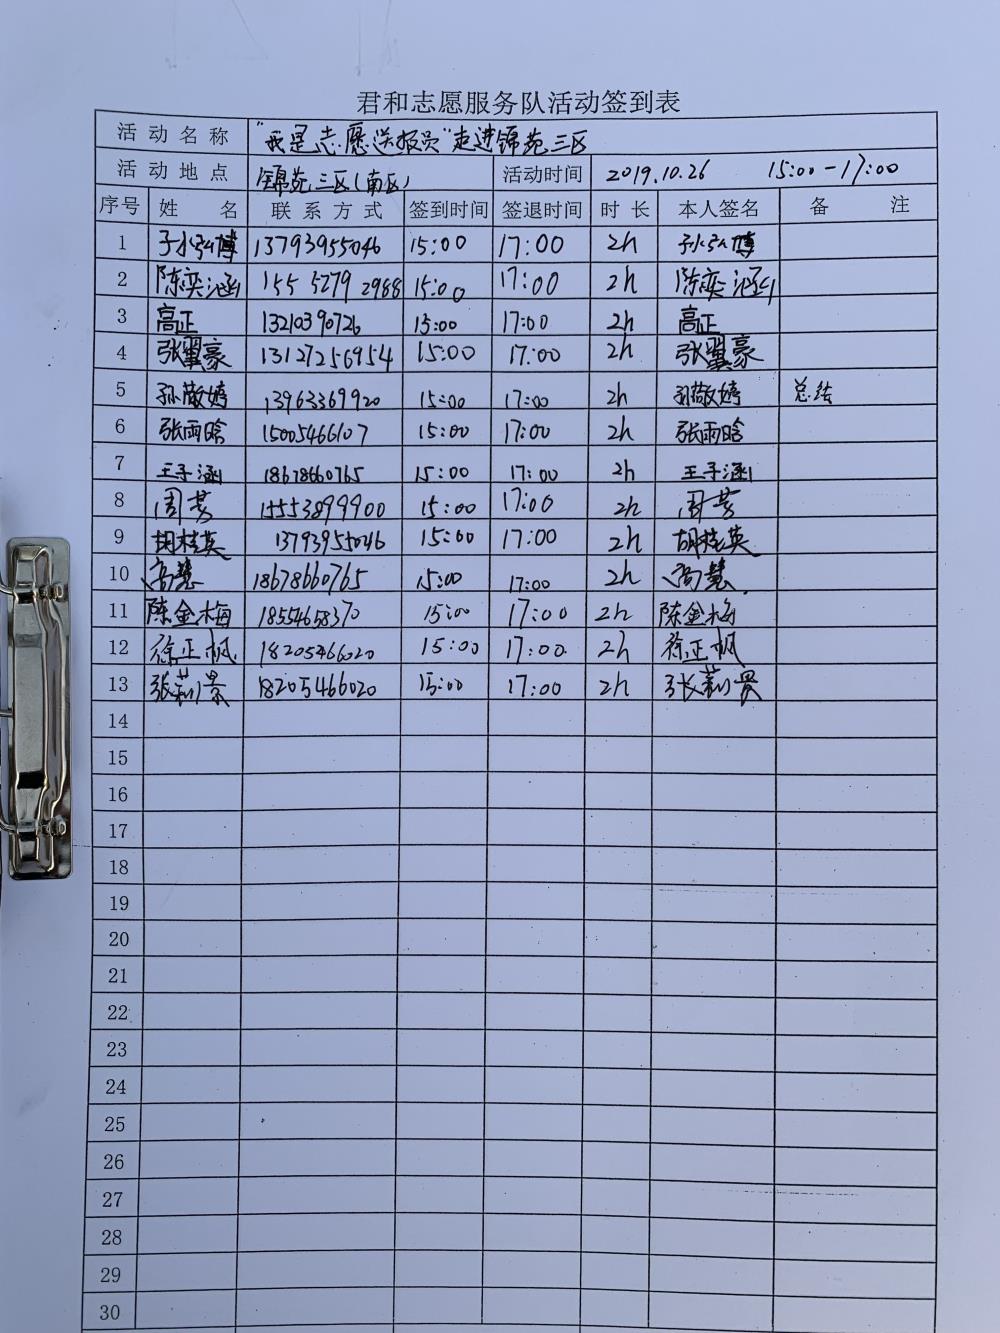 君和志愿服务队活动签到表
活动名称 "我是志愿送报员"走进锦苑三区
活动地点 锦苑三区(南区) 活动时间 2019.10.26 15:00-17:00
序号 姓名 联系方式 签到时间 签退时间 时长 本人签名 备注
1 孙弘博 13793955046 15:00 17:00 2h 孙弘博
2 陈奕涵 155 5279 2988 15:00 17:00 2h 陈奕涵
3 高正 13210390726 15:00 17:00 2h 高正
4 张翼豪 13127256954 15:00 17:00 2h 张翼豪
5 孙敬婷 13963369920 15:00 17:00 2h 孙敬婷 总结
6 张雨晗 15005466107 15:00 17:00 2h 张雨晗
7 王子涵 18678660765 15:00 17:00 2h 王子涵
8 周芳 15553899900 15:00 17:00 2h 周芳
9 胡桂英 13793955046 15:00 17:00 2h 胡桂英
10 高慧 18678660765 15:00 17:00 2h 高慧
11 陈金梅 18554658370 15:00 17:00 2h 陈金梅
12 徐正帆 18205466020 15:00 17:00 2h 徐正帆
13 张莉景 18205466020 15:00 17:00 2h 张莉景
14
15
16
17
18
19
20
21
22
23
24
25
26
27
28
29
30